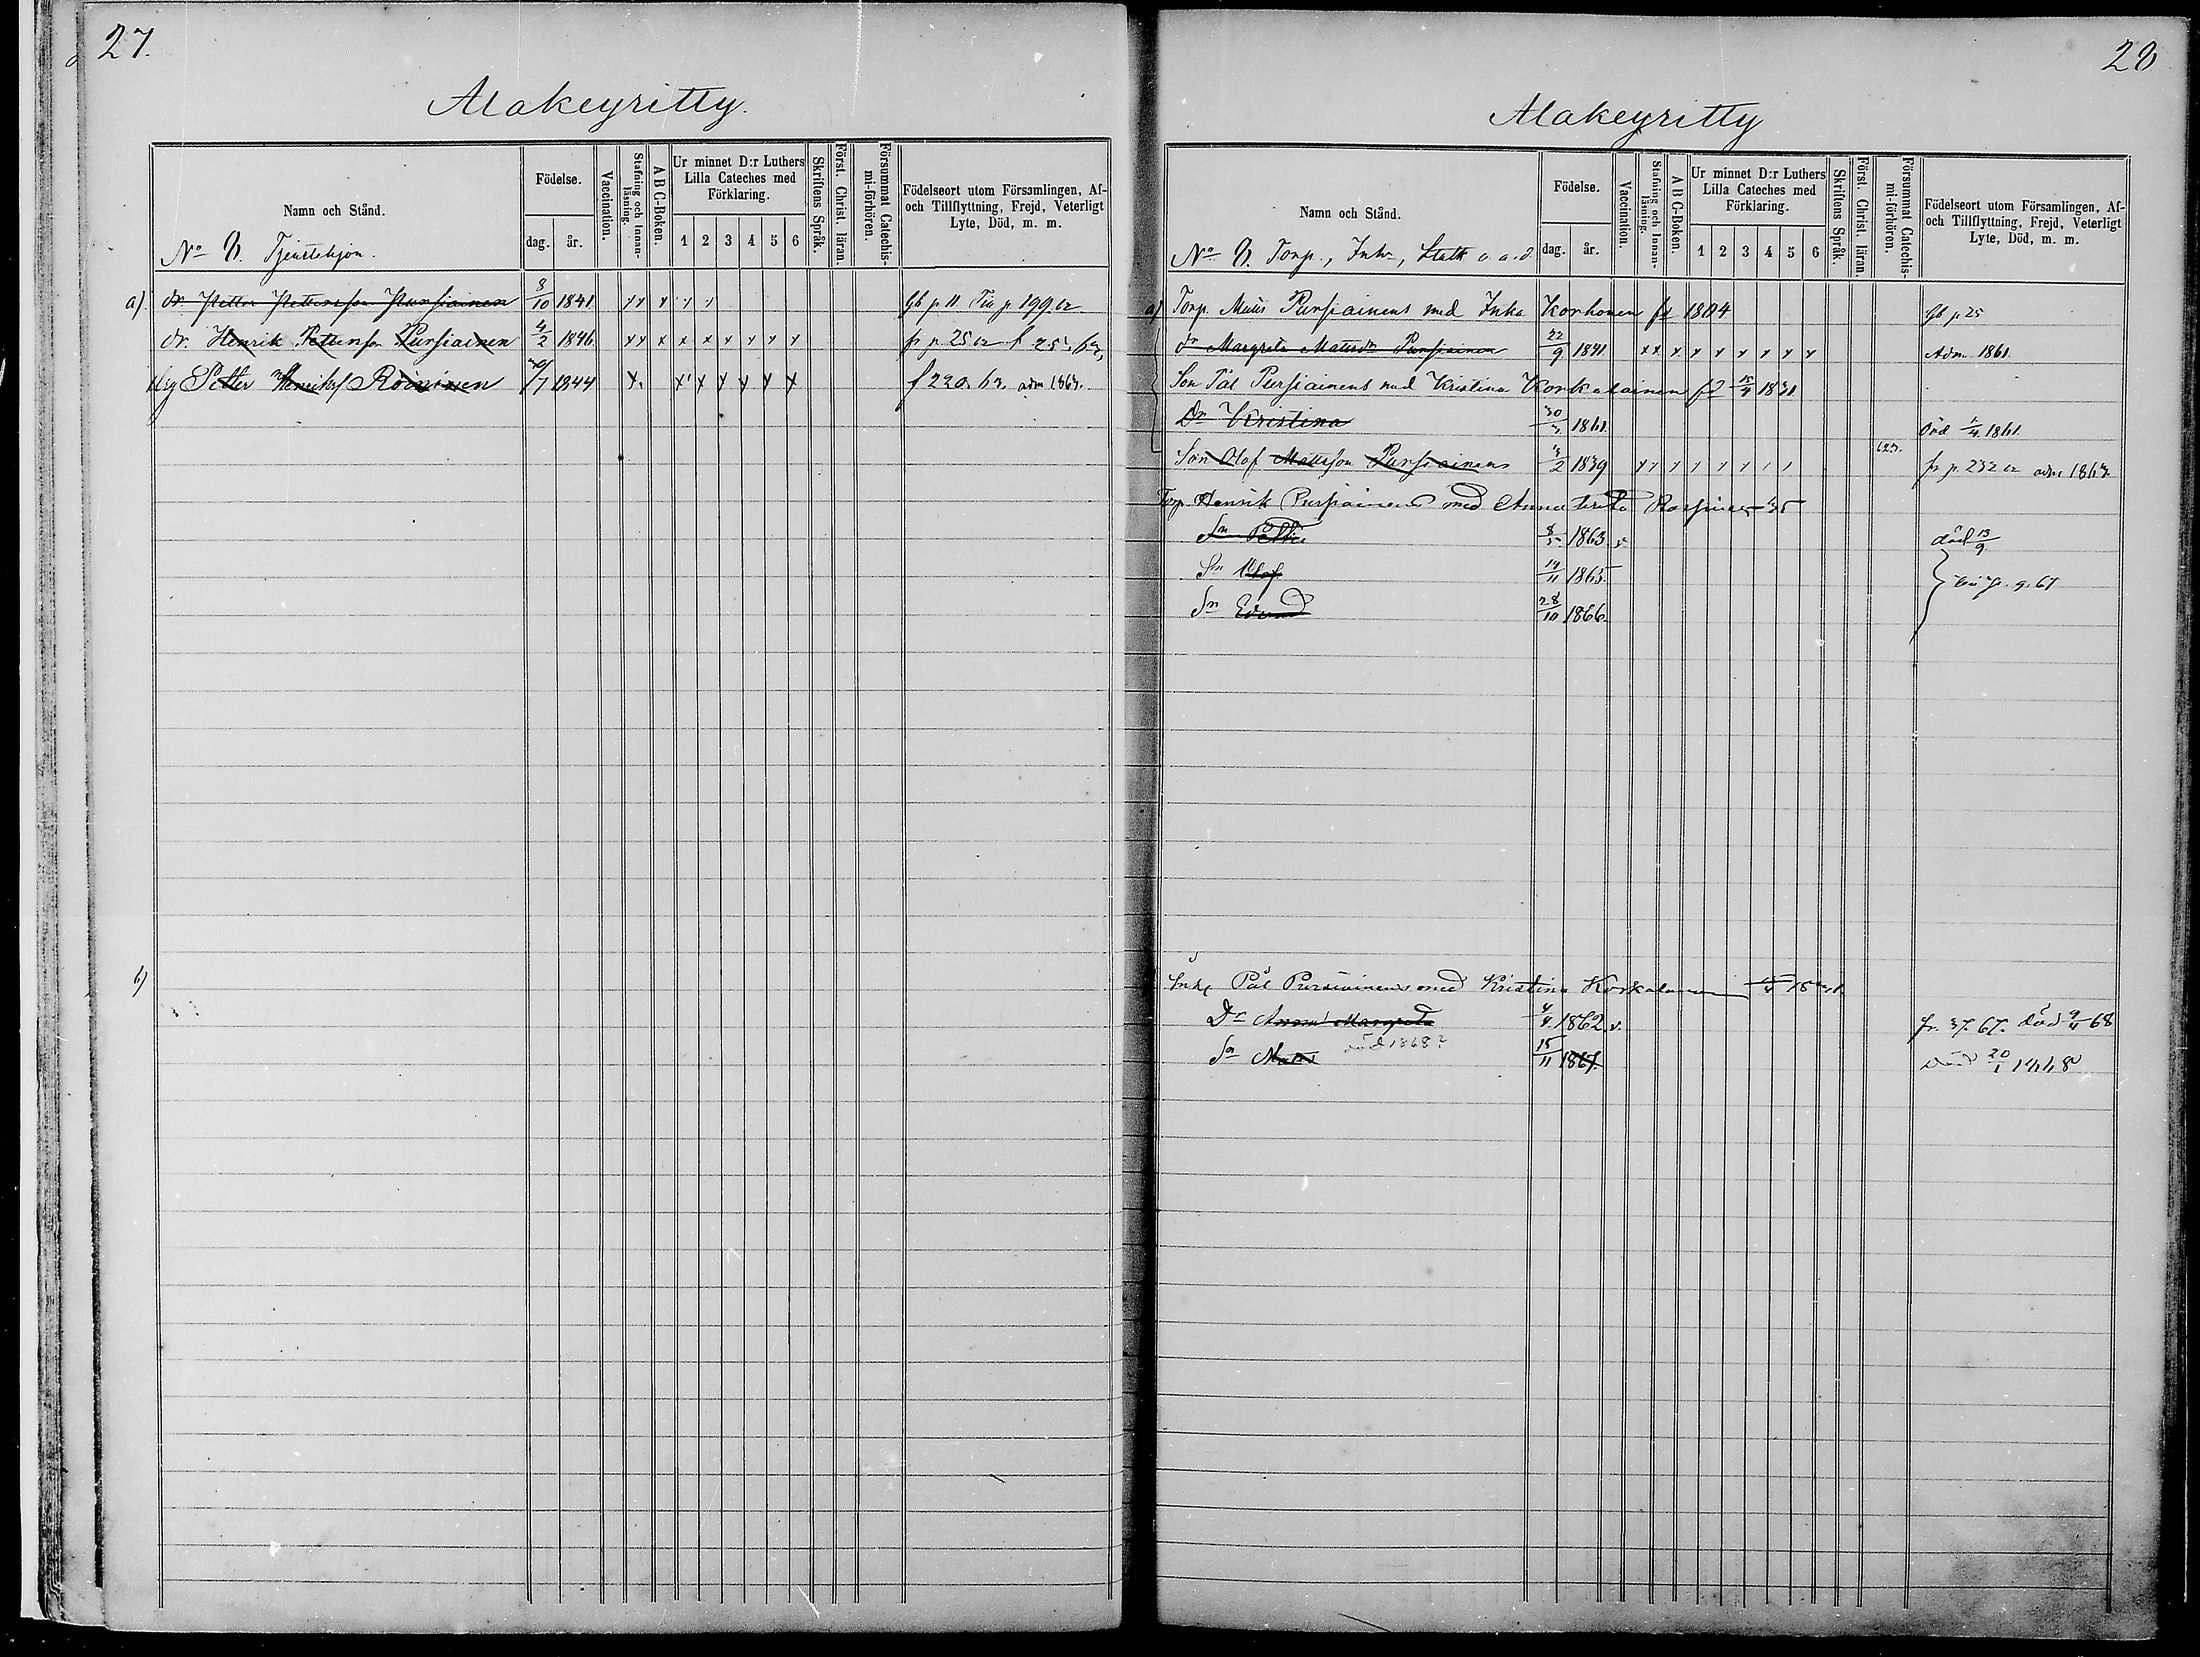 27.
Alakeyritty.
Namn och Stånd.
Födelse.
dag.
år.
Vaccination.
Stafning och Innanläsning.
A B C-Boken.
Ur minnet D:r Luthers Lilla Cateches med Förklaring.
1 2 3 4 5 6
Skriftens Språk.
Först. Christ läran.
Försummat Catechismi-förhören.
Födelseort utom Församlingen, Af- och Tillflyttning, Frejd, Veterligt Lyte, Död, m. m.
No 8. Tjenstehjon.
a) dr. Petter Pettersson Pursiainen 8/10 1841 x x x x x Gb p 11
dr. Henrik Petterss Pursiainen 4/2 1846 x x x x x x x x x fr p. 25
drg Petter Henrikss Roininen 1844 x x x x x x x adm 1863.
b)
28
Alakeyritty
Namn och Stånd.
Födelse.
dag.
år.
Vaccination.
Stafning och Innanläsning.
A B C-Boken.
Ur minnet D:r Luthers Lilla Cateches med Förklaring.
1 2 3 4 5 6
Skriftens Språk.
Först. Christ läran.
Försummat Catechismi-förhören.
Födelseort utom Församlingen, Af- och Tillflyttning, Frejd, Veterligt Lyte, Död, m. m.
No 8. Torp., Inh., Statt o. a. d.
a) Torp. Matts Pursiainens med Inka Korhonen 1804 Gb p 25
dr Margreta Matsdr Pursiainen 22/9 1841 x x x x x x x x x Adm. 1861
Son Pål Pursiainens med Kristina Korkalainen 15/4 1831
Dr Kristina 1861 Död 1861
Son Olof Mattsson Pursiainens 1839 x x x x x x x x fr p. 232 adm 1863
Torp. Henrik Pursiainens med Anna
Sn Petter 8/5 1863 v död 13/9
Sn Olof 14/11 1865
Sn Edvard 28/10 1866
Inh. Pål Pursiainens med Kristina Korkalainen
Dr Anna Margreta 4/4 1862 v. fr. 37. 67. död 9/4 68
Sn Mats död 1868? 15/11 1867. Död 20/1 1868